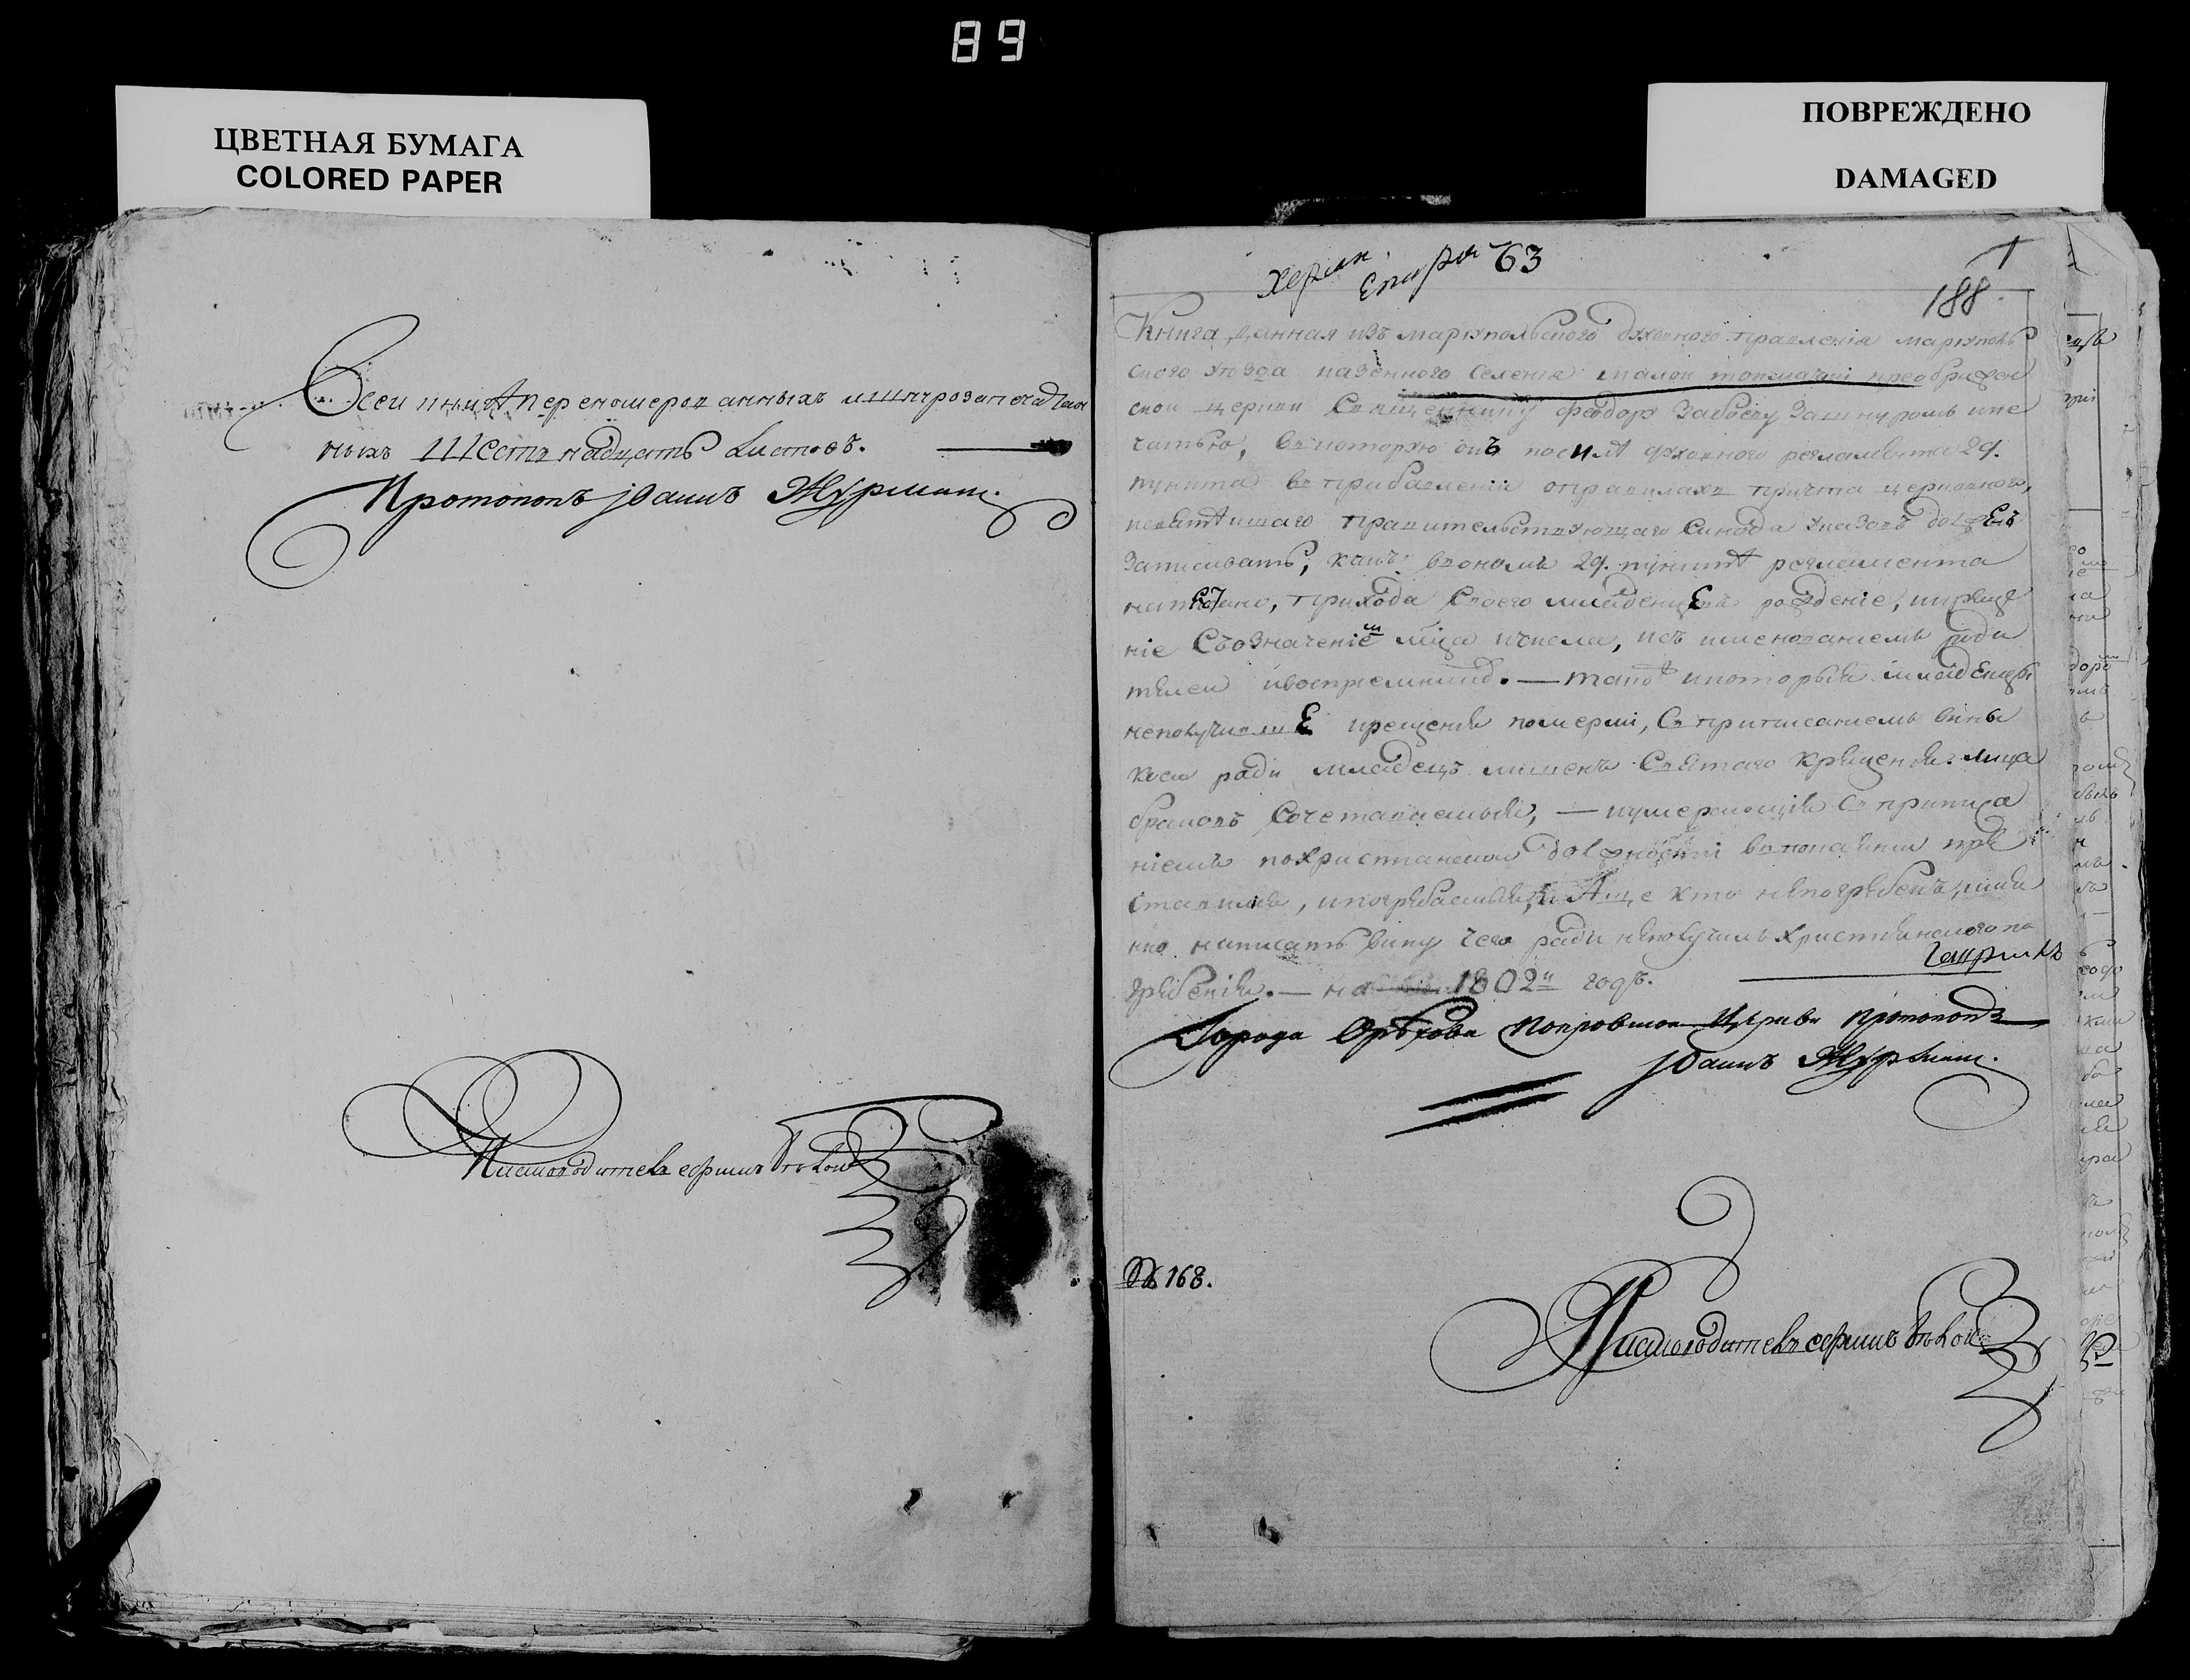 89
ЦВЕТНАЯ БУМАГА
COLORED PAPER
ПОВРЕЖДЕНО
DAMAGED
Всеи книгѣ перенумерованныхъ ишнурозапечатан
ныхъ Шестьнадцать Листовъ.
Протопопъ Іоаннъ
Писмоводитель
63
1
188
Книга данная изъ мариупольского духовного правленія мариуполь
ского уѣзда казенного селенія малои токмачки преображен
скои церкви Священнику феодору зашнуромъ ипе
чатью, вкоторую онъ посилѣ духовного регламента 29.
пункта вприбавленіи оправилахъ причта церковного,
исвятѣишаго правительствующаго Синода указовъ долженъ
записывать, какъ вономъ 29. пунктѣ регламента
напечатано, прихода своего младенцевъ рожденіе, икреще
ніе Съозначеніемъ мца ичисла, исъ именованіемъ роди
телеи ивоспріемниковъ. — такожъ икоторыя младенцы
неполучивше крещенія померли, Съприписаніемъ вины
коея ради младецъ лишенъ Святаго Крещенія. лица
бракомъ Сочетаваемыя, — иумерающія Съприписа
ніемъ похристіанскои должности впокаяніи пре
ставился, ипогребаемыя, Аще кто непогребенъ
написать вину чего ради неполучилъ христіянского по
гребенія. — на 1802й годъ.
Города Орѣхова Покровской Церкви Протопопъ
Іоаннъ
№ 168.
Писмоводитель